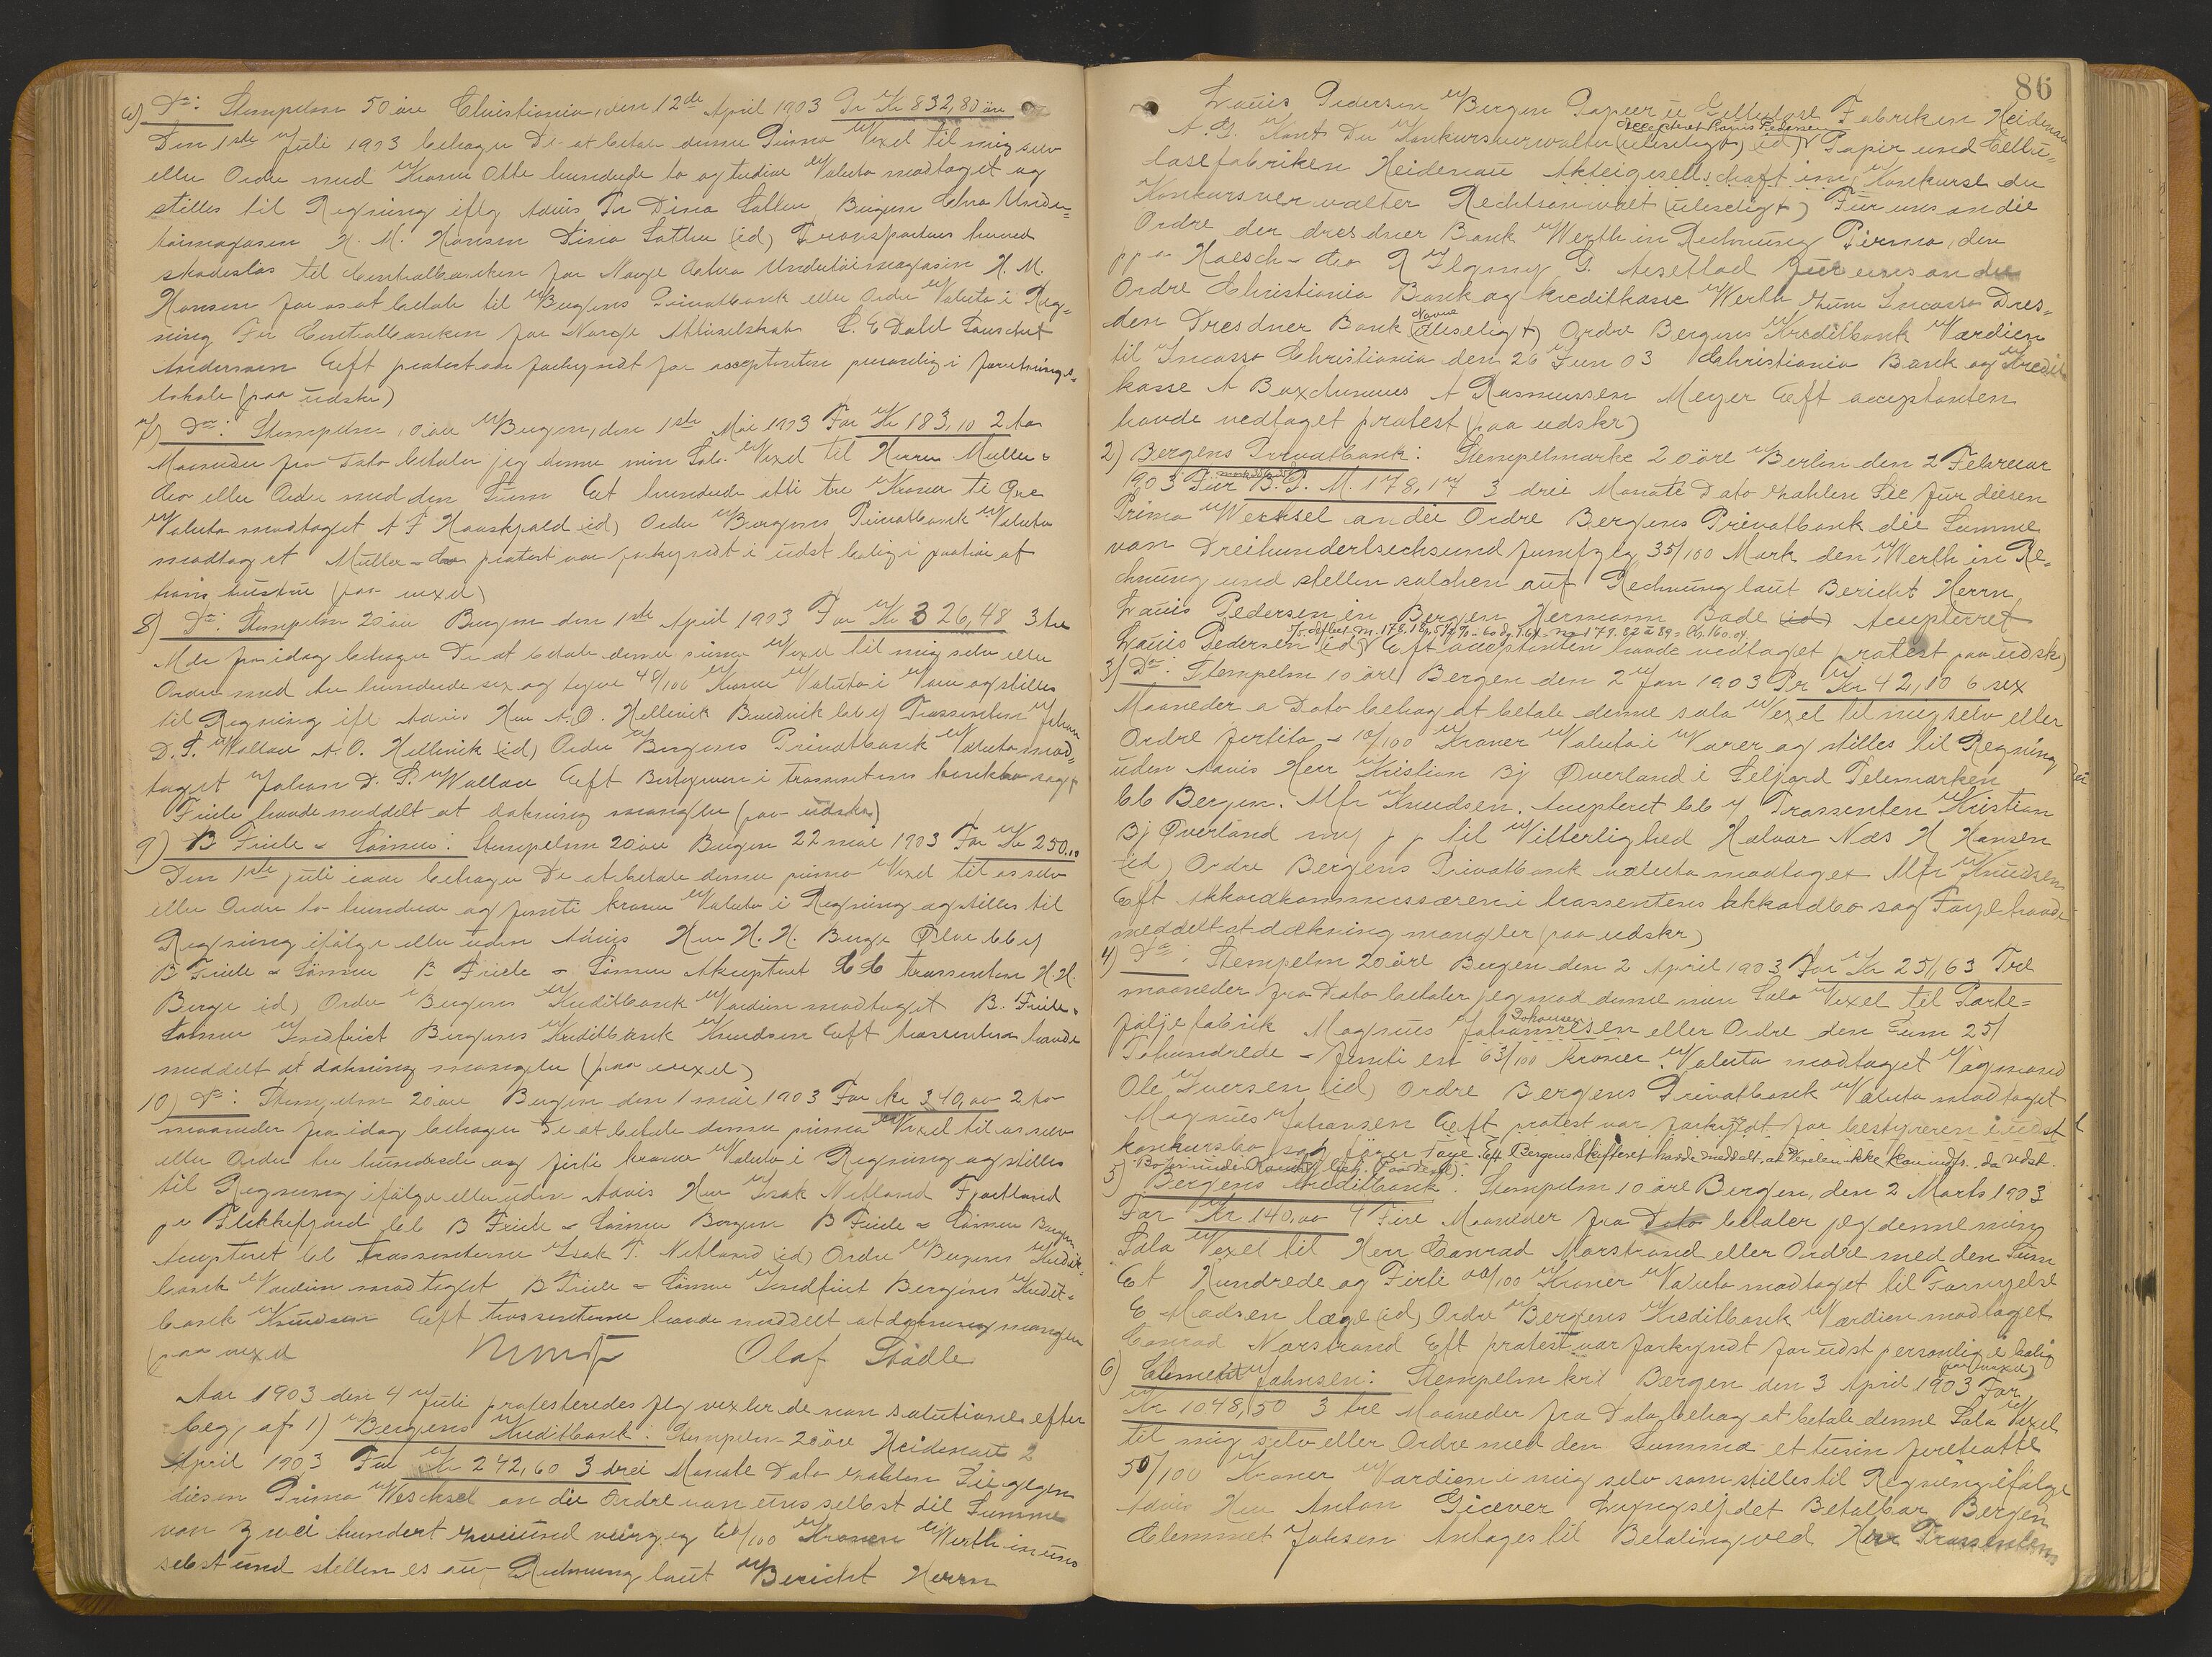 6) Do: Stempelm 50 øre Christiania, den 12de April 1903 Pr Kr 832,80 øre
Den 1ste Juli 1903 behager De at betale denne Prima Vexel til mig selv
eller Ordre med Kroner Otte hundrede to og tredive Valuta modtaget og
stilles til Regning iflg Advis Fru Dina Bergen Under=
tøimagasin H. M. Hansen Dina (id) Transporteres herved
skadesløs til Centralbanken for Norge Undertøimagasin H. M.
Hansen for os at betale til Bergens Privatbank eller Ordre Valuta i Reg=
ning For Centralbanken for Norge Aktieselskab
Andersen Eeft protest var forkyndt for acceptanten personlig i forretnings=
lokale (paa udskr)
7) Do: Stempelm 10 øre Bergen, den 1ste Mai 1903 For Kr 183,10 2 to
Maaneder fra Dato betaler jeg denne min Sola Vexel til Herrer Müller &
Co eller Ordre med den Sum Et hundrede otti tre Kroner ti Øre
Valuta modtaget A F (id) Ordre Bergens Privatbank Valuta
modtaget Müller & Co protest var forkyndt i udst bolig i paahør af
hans hustru (paa vexel)
8) Do: Stempelm 20 øre Bergen den 1ste April 1903 For Kr 326,48 3 tre
Mdr fra idag behager De at betale denne prima Vexel til mig selv eller
Ordre med tre hundrede sex og tyve 48/100 Kroner Valuta i Varer og stilles
til Regning ifl Advis Herr A. O. Hellevik Bb of Trassenten Johan
D. S. Wallace A. O. Hellevik (id) Ordre Bergens Privatbank Valuta mod=
taget Johan D. S. Wallace Eeft Bestyreren i trassentens konkbo sagf
Friele havde meddelt at dækning mangler (paa udskr)
9) B Friele & Sønner: Stempelm 20 øre Bergen 22 mai 1903 For Kr 250.00
Den 1ste juli iaar behager De at betale denne prima Vexel til os selv
eller Ordre to hundrede og femti kroner Valuta i Regning og stilles til
Regning ifølge eller uden Advis Herr H. H. Berge Ølve bb of
B Friele & Sønner B Friele & Sønner Akcepteret bb trassenten H. H.
Berge id) Ordre Bergens Kreditbank Værdien modtaget B. Friele &
Sønner Indfriet Bergens Kreditbank Knudsen Eeft trassenten havde
meddelt at dækning mangler (paa vexel)
10) Do: Stempelm 20 øre Bergen den 1 mai 1903 For kr 340,00 2 to
maaneder fra idag behager De at betale denne prima Vexel til os selv
eller Ordre tre hundrede og firti kroner Valuta i Regning og stilles
til Regning ifølge eller uden Advis Herr Isak Netland Fjotland
pr Flekkefjord bb B Friele & Sønner Bergen B Friele & Sønner Bergen
Accepteret bb Trassenterne Isak T. Netland (id) Ordre Bergens Kredit=
bank Værdien modtaget B Friele & Sønner Indfriet Bergens Kredit=
bank Knudsen Eeft trassenterne havde meddelt at dækning mangler
(paa vexel Olaf Städle
Aar 1903 den 4 Juli protesteredes flg vexler de non solutione efter
beg. af 1) Bergens Kreditbank: Stempelm 20 øre Heidenau 2
April 1903 Für Kr 242,60 3 drei Monate Dato zahlen Sie gegen
diesen Prima Wechsel an die Ordre von uns selbst die Summe
von zwei hundert zweiund vierzig 60/100 Kronen Werth in uns
selbst und stellen es auf Rechnung laut Bericht Herrn
86
Louis Pedersen Bergen Papier u Cellulose Fabriken Heidenau
Accepteret Louis Pedersen
A. G. Konk Der Konkursverwalter (ulæseligt) (id) Papir und Cellu=
losefabriken Heidenau Akteigesellschaft im Konkurse der
Konkursverwalter Rechtsanwalt (ulæseligt) Für uns an die
Ordre der dresdner Bank Werth in Rechnung Pirna, den
pp Hoesch & Co Für uns an die
Ordre Christiania Bank og kreditkasse Werth zum Incasso Dres=
den Dresdner Bank (Navne ulæseligt) Ordre Bergens Kreditbank Værdien
til Incasso Christiania den 26 Jun 03 Christiania Bank og Kredit
kasse A A Rasmussen Meyer Eeft acceptanten
havde vedtaget protest (paa udskr)
2) Bergens Privatbank: Stempelmarke 20 øre Berlin den 2 Februar
903 Für B. P. M. 178,17 3 drei Monate Dato zahlen Sie für diesen
Prima Wechsel an die Ordre Bergens Privatbank die Summe
von Dreihundertsechsund fumfzig 35/100 Mark den Werth in Re=
chnung und stellen solchen auf Rechnung laut Bericht Herrn
Louis Pedersen in Bergen Hermann Bade (id) Accepteret
Louis Pedersen (id) Eeft acceptanten havde vedtaget protest paa udskr)
3) Do: Stempelm 10 øre Bergen den 2 Jan 1903 Pr Kr 42,10 6 sex
Maaneder a Dato behag at betale denne sola Vexel til mig selv eller
Ordre fortito & 10/100 Kroner Valuta i Varer og stilles til Regning
uden Advis Herr Kristian Bj Øverland i Seljord Telemarken
bb Bergen. Mfr Knudsen. Accepteret bb of Trassenten Kristian
Bj Øverland mf p p til Vitterlighed Halvor Næs H Hansen
(id) Ordre Bergens Privatbank valuta modtaget Mfr Knudsen
Eeft Akkordkommissæren i trassentens akkordbo sagf Faye havde
meddelt at dækning mangler (paa udskr)
4) Do: Stempelm 20 øre Bergen den 2 April 1903 For Kr 251,63 Tre
maaneder fra Dato betaler jeg mod denne min Sola Vexel til Porte=
føljefabrik Magnus Johannesen Johansen eller Ordre den Sum 251
Tohundrede & femti en 63/100 Kroner. Valuta modtaget Vognmand
Ole Iversen (id) Ordre Bergens Privatbank Valuta modtaget
Magnus Johansen Eeft protest var forkyndt for bestyreren i udst
konkursbo sagfører Faye. Eft Bergens Skifteret havde meddelt, at Vexelen ikke kan indfr. da udst.
5) Bergens Kreditbank: Stempelm 10 øre Bergen, den 2 Marts 1903
For Kr 140,00 4 Fire Maaneder fra Dato betaler jeg denne min
Sola Vexel til Herr Conrad Marstrand eller Ordre med den Sum
Et Hundrede og Firti 00/100 Kroner Valuta modtaget til Fornyelse
E Madsen læge (id) Ordre Bergens Kreditbank Værdien modtaget
Conrad Marstrand Eft protest var forkyndt for udst personlig i bolig
(paa vexel)
6) Clemet Johnsen: Stempelm kr 1 Bergen den 3 April 1903 For
Kr 1048,50 3 tre Maaneder fra Dato behag at betale denne Sola Vexel
til mig selv eller Ordre med den Summa et tusin firetiotte
50/100 Kroner Værdien i mig selv som stilles til Regning ifølge
Advis Herr Anton Giæver Lyngseidet Betalbar Bergen
Clemmet Johsen Antages til Betaling ved Herr Trassentens